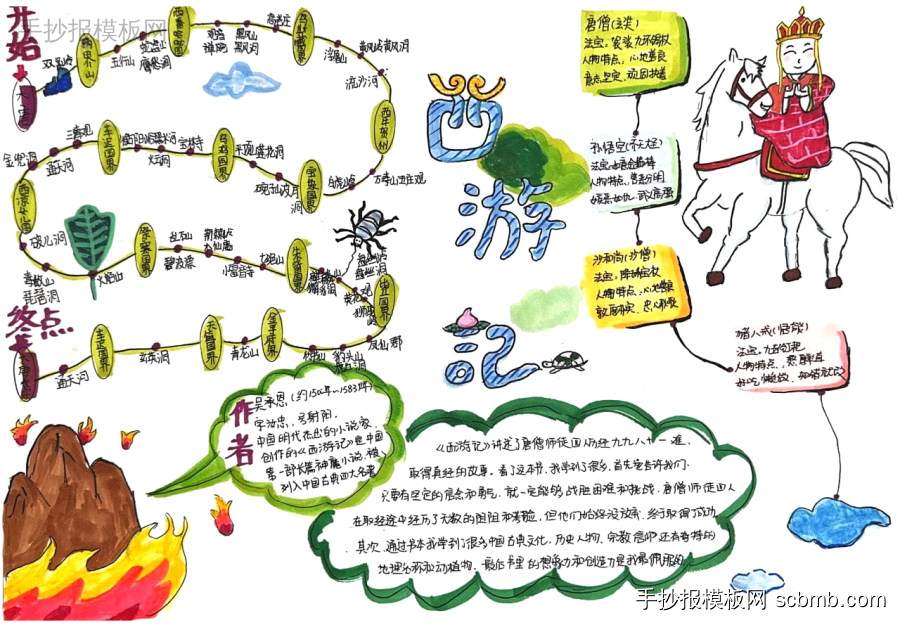 手抄报模板网
开始
双叉岭
五行山
高老庄
黑风山
黑风洞
浮屠山
黄风岭黄风洞
流沙河
西牛贺州
万寿山五庄观
白虎岭
宝象国界
碗子山波月洞
平顶山莲花洞
乌鸡国界
宝林寺
火云洞
黑水河
车迟国界
三清观
通天河
金兜洞
西凉女儿国
毒敌山
琵琶洞
火焰山
祭赛国界
乱石山
碧波潭
小雷音寺
七绝山
朱紫国界
狮驼岭
凤仙郡
豹头山
金平府界
青龙山
天竺国界
通天河
终点
西游记
唐僧(玄奘)
法宝：袈裟九环锡杖
人物特点：心地善良
意志坚定、顽固执着
孙悟空(齐天大圣)
法宝：如意金箍棒
人物特点：善恶分明
嫉恶如仇、武艺高强
沙和尚(沙僧)
法宝：降妖宝杖
人物特点：心地善良
敦厚朴实、忠心耿耿
猪八戒(悟能)
法宝：九齿钉耙
人物特点：憨厚率真
好吃懒做、知错就改
作者
吴承恩(约1500年-1583年)
字汝忠，号射阳，
中国明代杰出的小说家，
创作的《西游记》是中国
第一部长篇神魔小说，被
列入中国古典四大名著
《西游记》讲述了唐僧师徒四人历经九九八十一难，
取得真经的故事。看了这本书，我学到了很多，首先它告诉我们：
只要有坚定的信念和勇气，就一定能够战胜困难和挑战，唐僧师徒四人
在取经途中经历了无数的困阻和考验，但他们始终没放弃，终于取得了成功
其次，通过书本我学到了很多中国古典文化，历史人物、宗教信仰还有奇特的
地理名称和动植物，最后书里的想象力和创造力是我最佩服的
手抄报模板网 scbmb.com